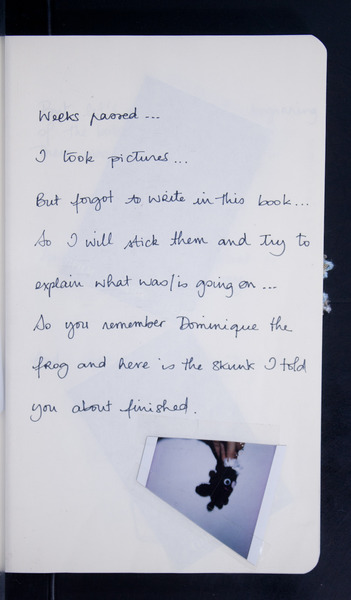 Weeks passed...
I took pictures...
But forgot to write in this book...
So I will stick them and try to
explain what was/is going on...
So you remember Dominique the
frog and here is the skunk I told
you about finished.